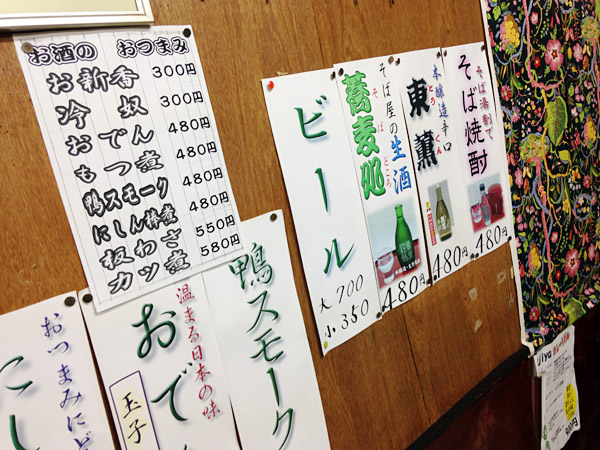 お酒の おつまみ
お新香 300円
冷奴 300円
おでん 480円
もつ煮 480円
鴨スモーク 480円
にしん棒煮 480円
板わさ 550円
カツ煮 580円
ビール
大 700
小 350
そば屋の生酒
蕎麦処
そばどころ
480円
本醸造辛口
東薫
とうくん
480円
そば湯割で
そば焼酎
480円
おつまみにど
にし
温まる日本の味
おで
玉子
鴨スモーク